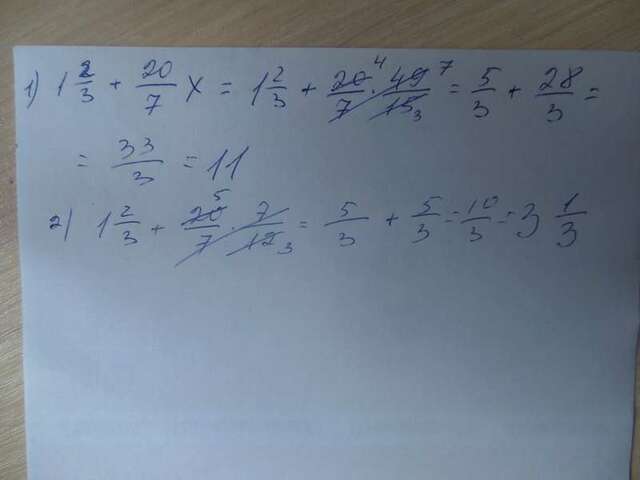 1) 1 2/3 + 20/7 x = 1 2/3 + 20/7 4 · 49/15 7 3 = 5/3 + 28/3 =
= 33/3 = 11
2) 1 2/3 + 20/7 5 · 7/12 3 = 5/3 + 5/3 = 10/3 = 3 1/3